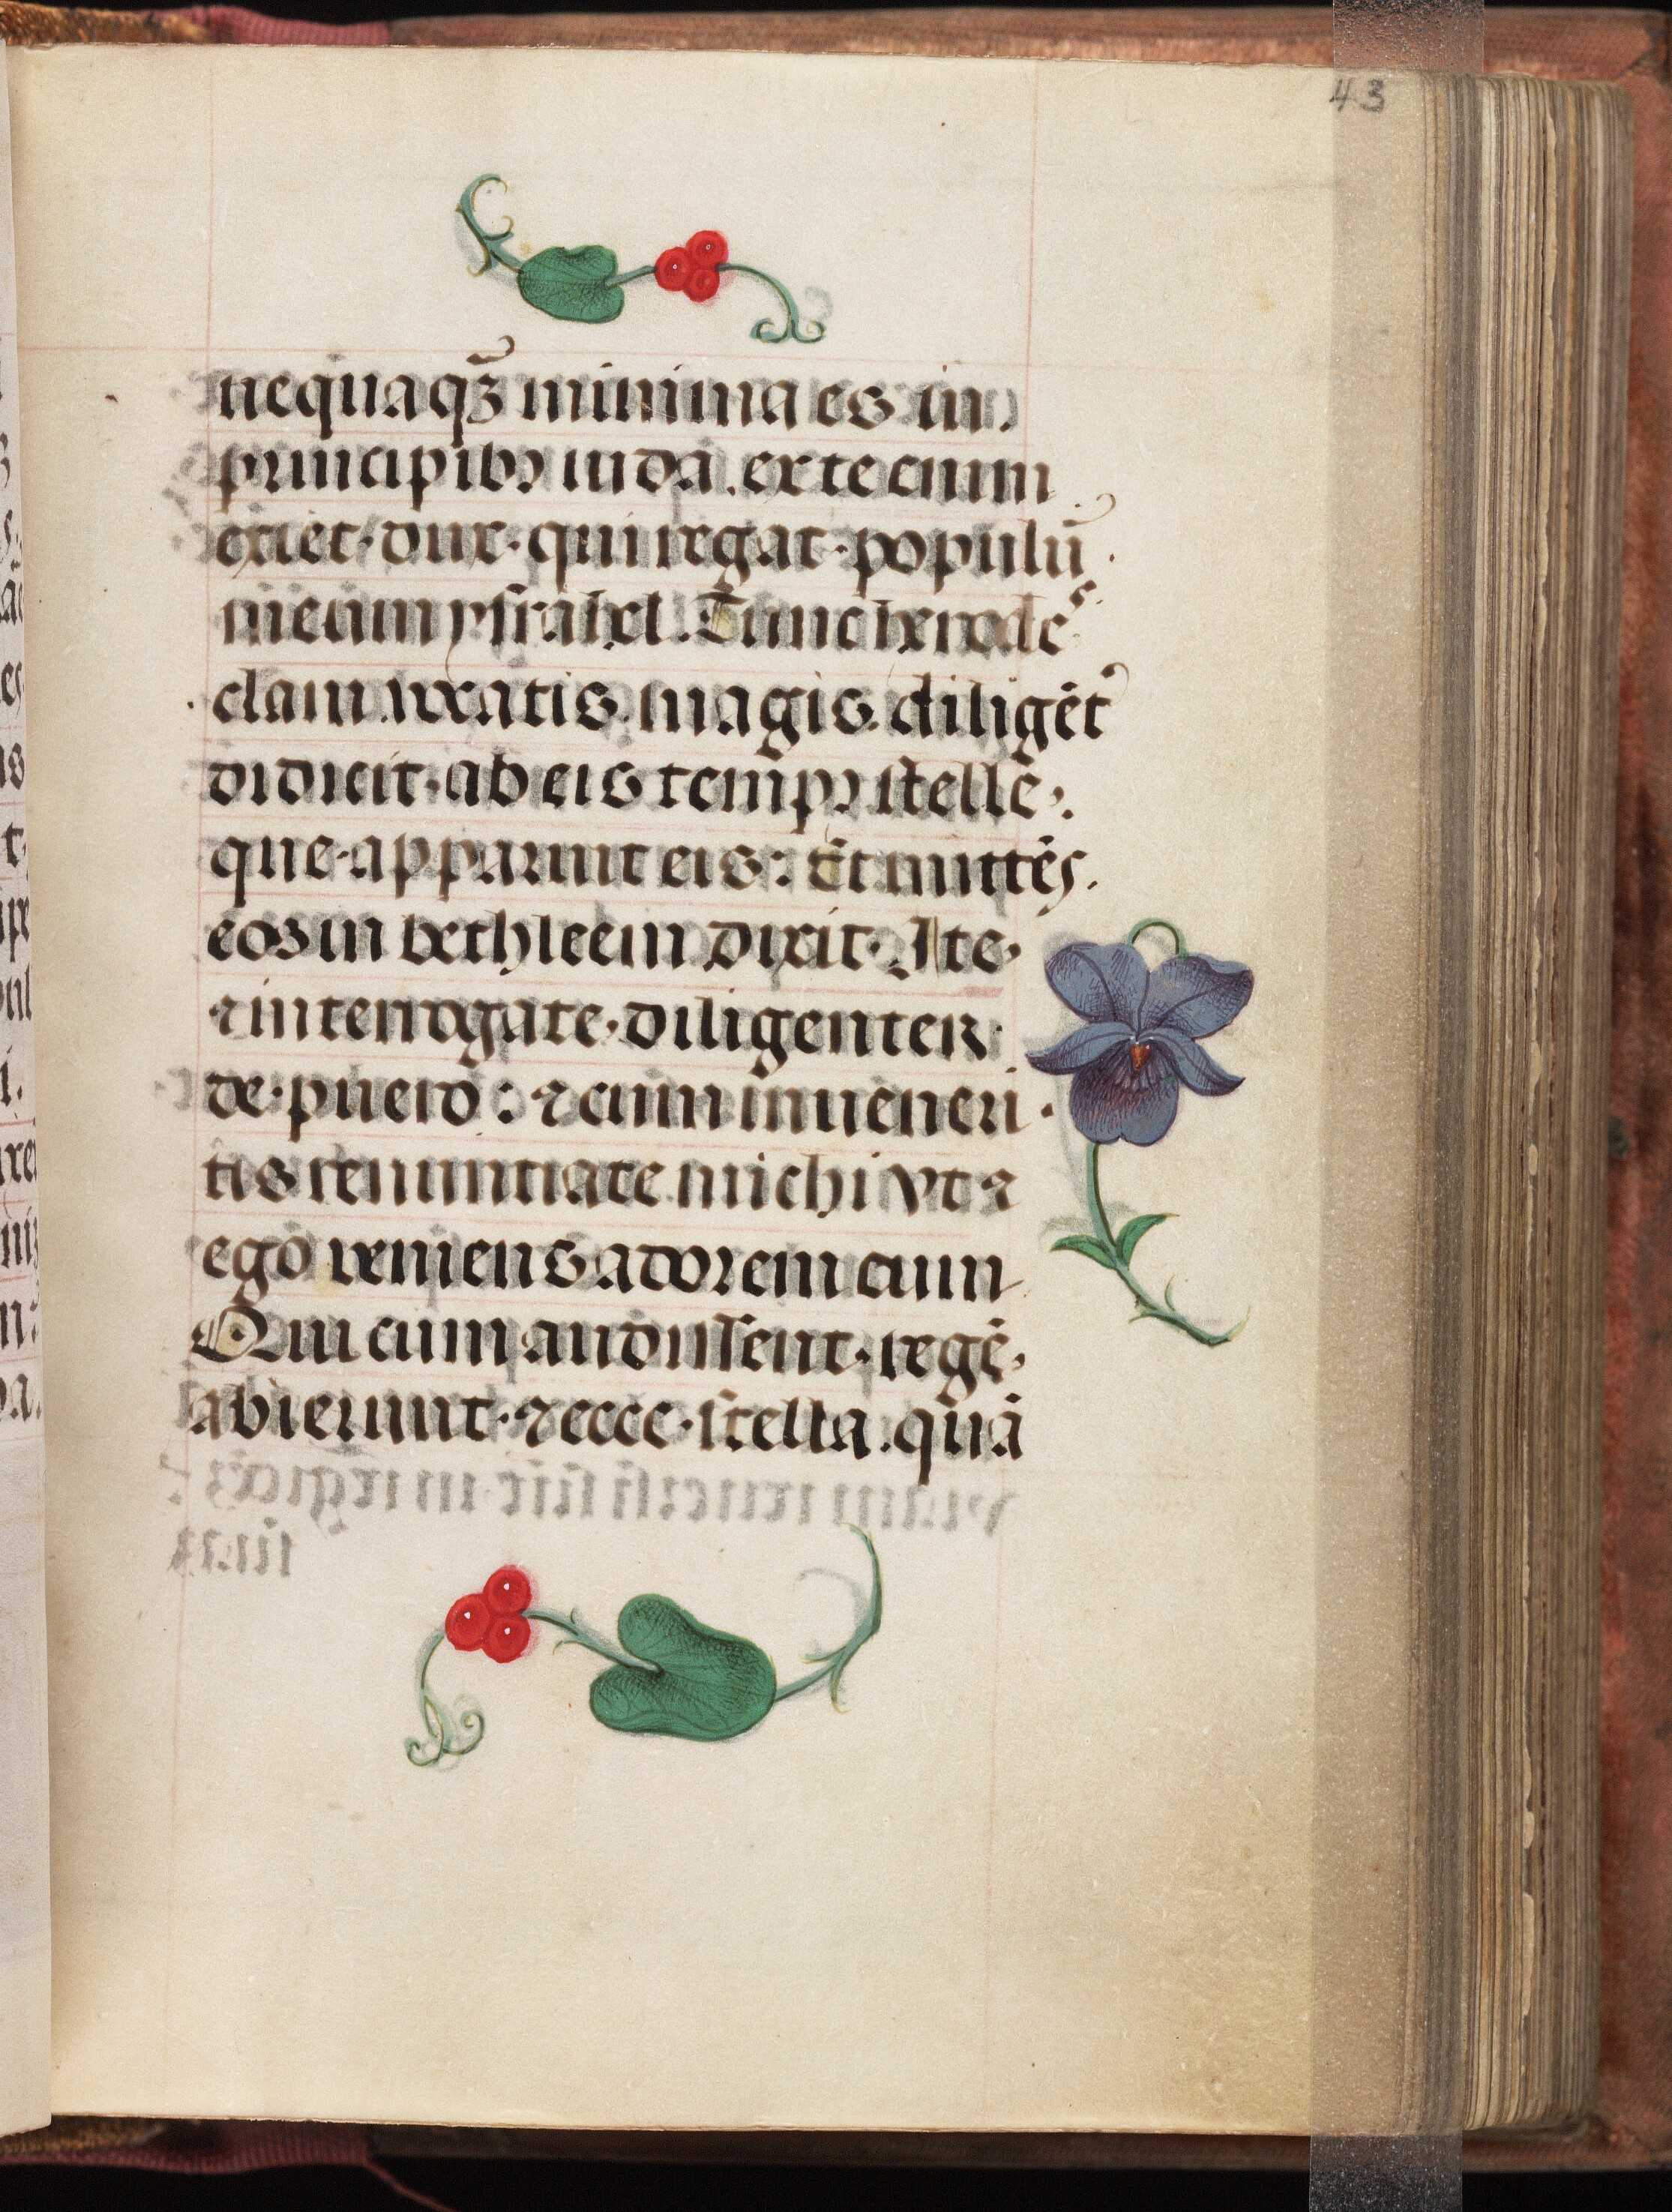 43
nequaqȝ minima es in
principibꝫ iuda. ex te enim
exiet· dux· qui regat· populū
meum ysrahel. Tunc herodes
clam vocatis magis diligēt᷒
didicit· ab eis temp᷒ stelle·
que· apparuit eis: Et mittēs.
eos in bethleem dixit· Ite·
⁊ interrogate· diligenter·
de· puero: ⁊ cum inueneri·
tis renuntiate michi vt ⁊
ego veniens adorem eum
Qui cum audissent· regē·
abierunt· ⁊ ecce· stella. quā